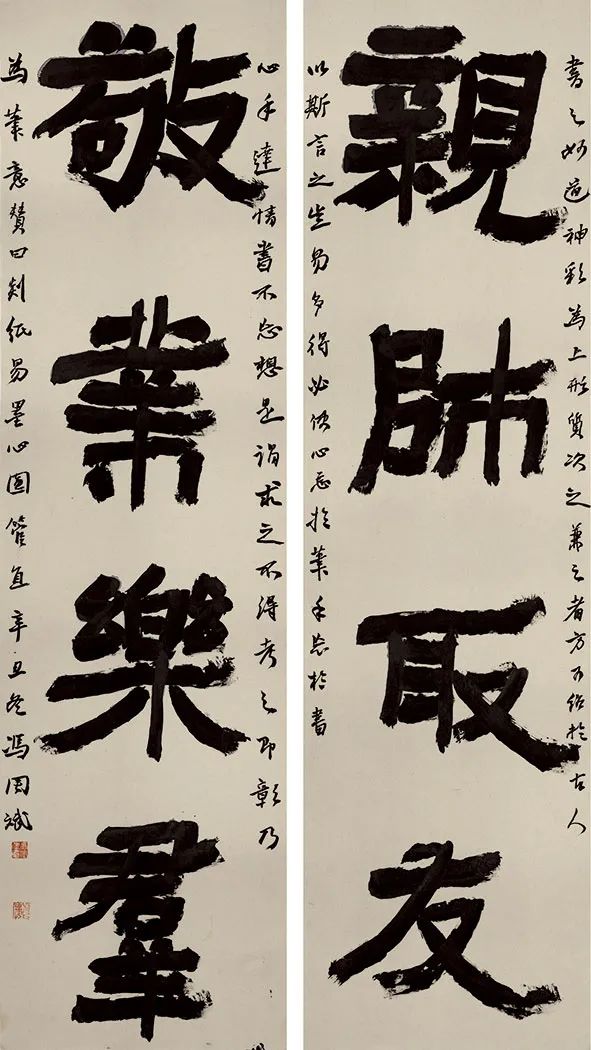 書之妙道神彩為上形質次之兼之者方可紹於古人
親師取友
以斯言之豈易多得必使心忘於筆手忘於書
心手達情書不忘想是謂求之不得考之即彰乃
敬業樂羣
為筆意贊曰剡紙易墨心圓管直辛丑冬馮斌